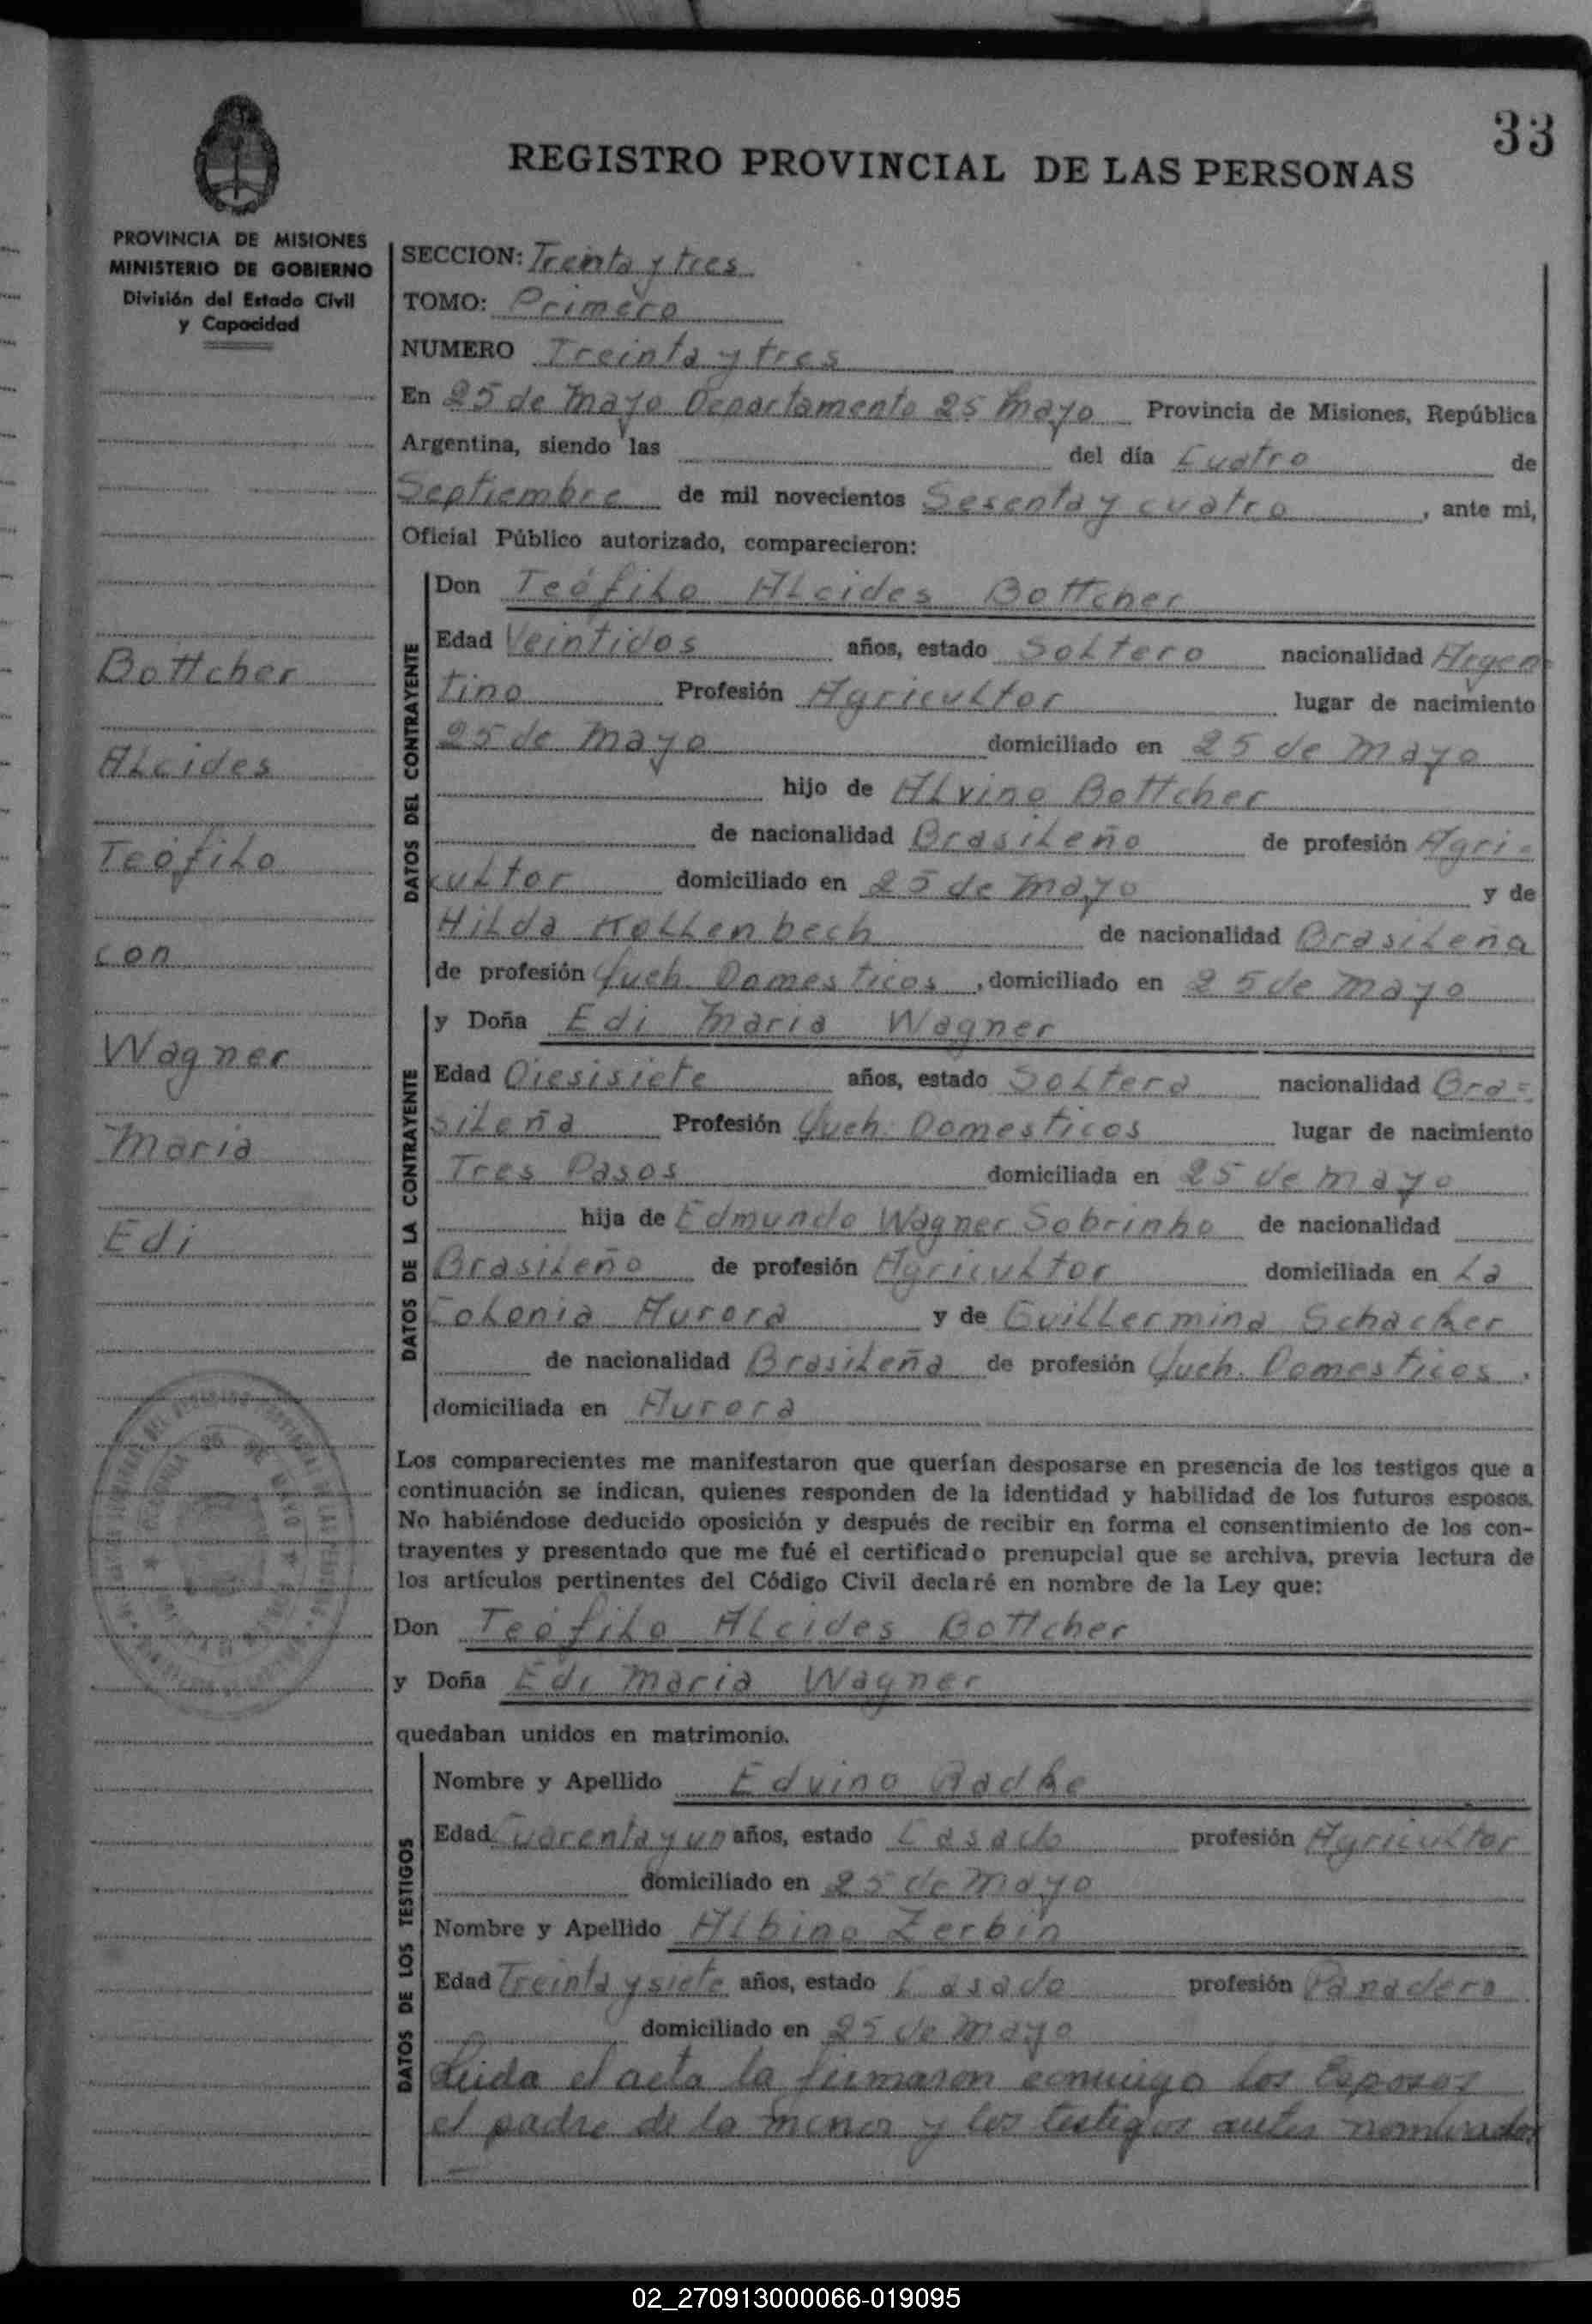 33
REGISTRO PROVINCIAL DE LAS PERSONAS
PROVINCIA DE MISIONES
MINISTERIO DE GOBIERNO
División del Estado Civil
y Capacidad
Bottcher
Alcides
Teófilo
con
Wagner
Maria
Edi
SECCION: Treinta y tres
TOMO: Primero
NUMERO Treinta y tres
En 25 de Mayo Departamento 25 Mayo Provincia de Misiones, República
Argentina, siendo las del día Cuatro de
Septiembre de mil novecientos Sesenta y cuatro, ante mi,
Oficial Público autorizado, comparecieron:
DATOS DEL CONTRAYENTE
Don Teófilo Alcides Bottcher
Edad Veintidos años, estado Soltero nacionalidad Argen
tino Profesión Agricultor lugar de nacimiento
25 de Mayo domiciliado en 25 de Mayo
hijo de Alvino Bottcher
de nacionalidad Brasileño de profesión Agri=
cultor domiciliado en 25 de Mayo y de
Hilda Kollenbech de nacionalidad Brasileña
de profesión Queh. Domesticos, domiciliado en 25 de Mayo
DATOS DE LA CONTRAYENTE
y Doña Edi Maria Wagner
Edad Diesisiete años, estado Soltera nacionalidad Bra=
sileña Profesión Queh. Domesticos lugar de nacimiento
Tres Pasos domiciliada en 25 de Mayo
hija de Edmundo Wagner Sobrinho de nacionalidad
Brasileño de profesión Agricultor domiciliada en La
Colonia Aurora y de Guillermina Schacker
de nacionalidad Brasileña de profesión Queh. Domesticos,
domiciliada en Aurora
Los comparecientes me manifestaron que querían desposarse en presencia de los testigos que a
continuación se indican, quienes responden de la identidad y habilidad de los futuros esposos.
No habiéndose deducido oposición y después de recibir en forma el consentimiento de los con-
trayentes y presentado que me fué el certificado prenupcial que se archiva, previa lectura de
los artículos pertinentes del Código Civil declaré en nombre de la Ley que:
Don Teófilo Alcides Bottcher
y Doña Edi Maria Wagner
quedaban unidos en matrimonio.
DATOS DE LOS TESTIGOS
Nombre y Apellido Edvino Radke
Edad Cuarenta y un años, estado Casado profesión Agricultor
domiciliado en 25 de Mayo
Nombre y Apellido Albino Zerbin
Edad Treinta y siete años, estado Casado profesión Panadero
domiciliado en 25 de Mayo
Leida el acta la firmaron conmigo los Esposos
el padre de la menor y los testigos antes nombrados
02_270913000066-019095